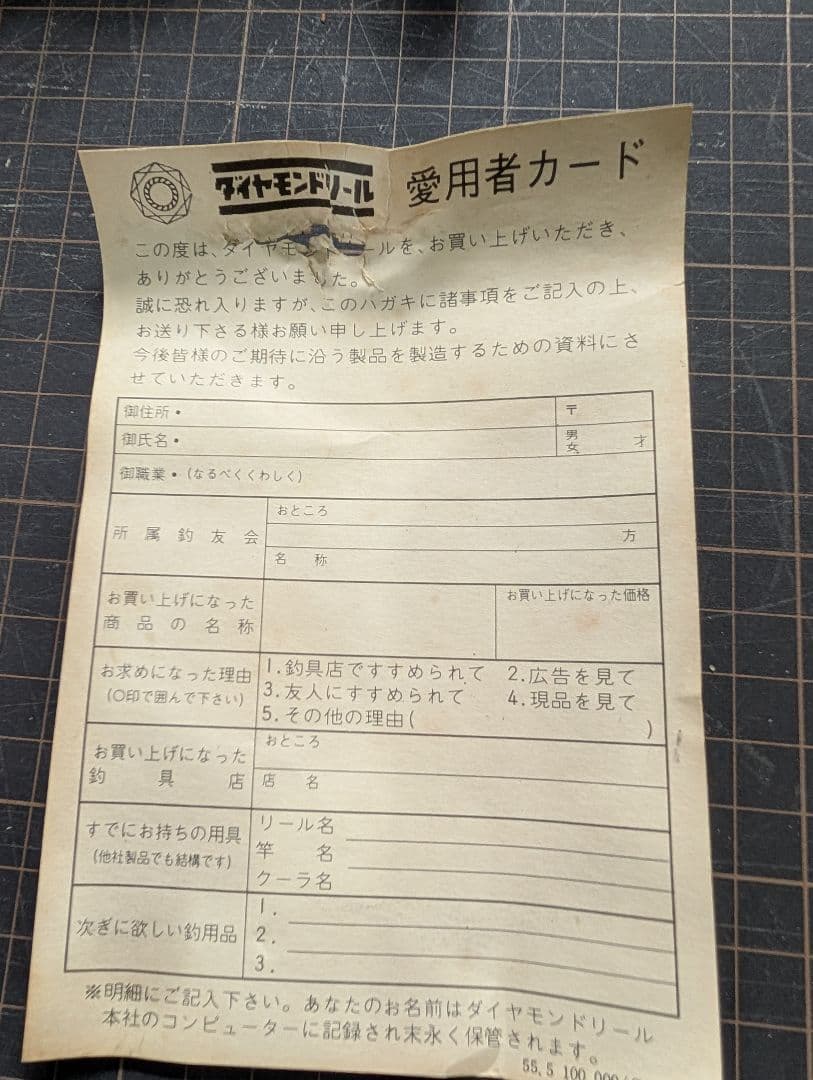 ダイヤモンドリール 愛用者カード
この度は、ダイヤモンドリールを、お買い上げいただき、
ありがとうございました。
誠に恐れ入りますが、このハガキに諸事項をご記入の上、
お送り下さる様お願い申し上げます。
今後皆様のご期待に沿う製品を製造するための資料にさ
せていただきます。
御住所・ 〒
御氏名・ 男 女 才
御職業・(なるべくくわしく)
所属釣友会
おところ
方
名 称
お買い上げになった
商品の名称
お買い上げになった価格
お求めになった理由
(○印で囲んで下さい)
1.釣具店ですすめられて 2.広告を見て
3.友人にすすめられて 4.現品を見て
5.その他の理由( )
お買い上げになった
釣具店
おところ
店 名
すでにお持ちの用具
(他社製品でも結構です)
リール名
竿 名
クーラ名
次ぎに欲しい釣用品
1.
2.
3.
※明細にご記入下さい。あなたのお名前はダイヤモンドリール
本社のコンピューターに記録され末永く保管されます。
55.5 100,000